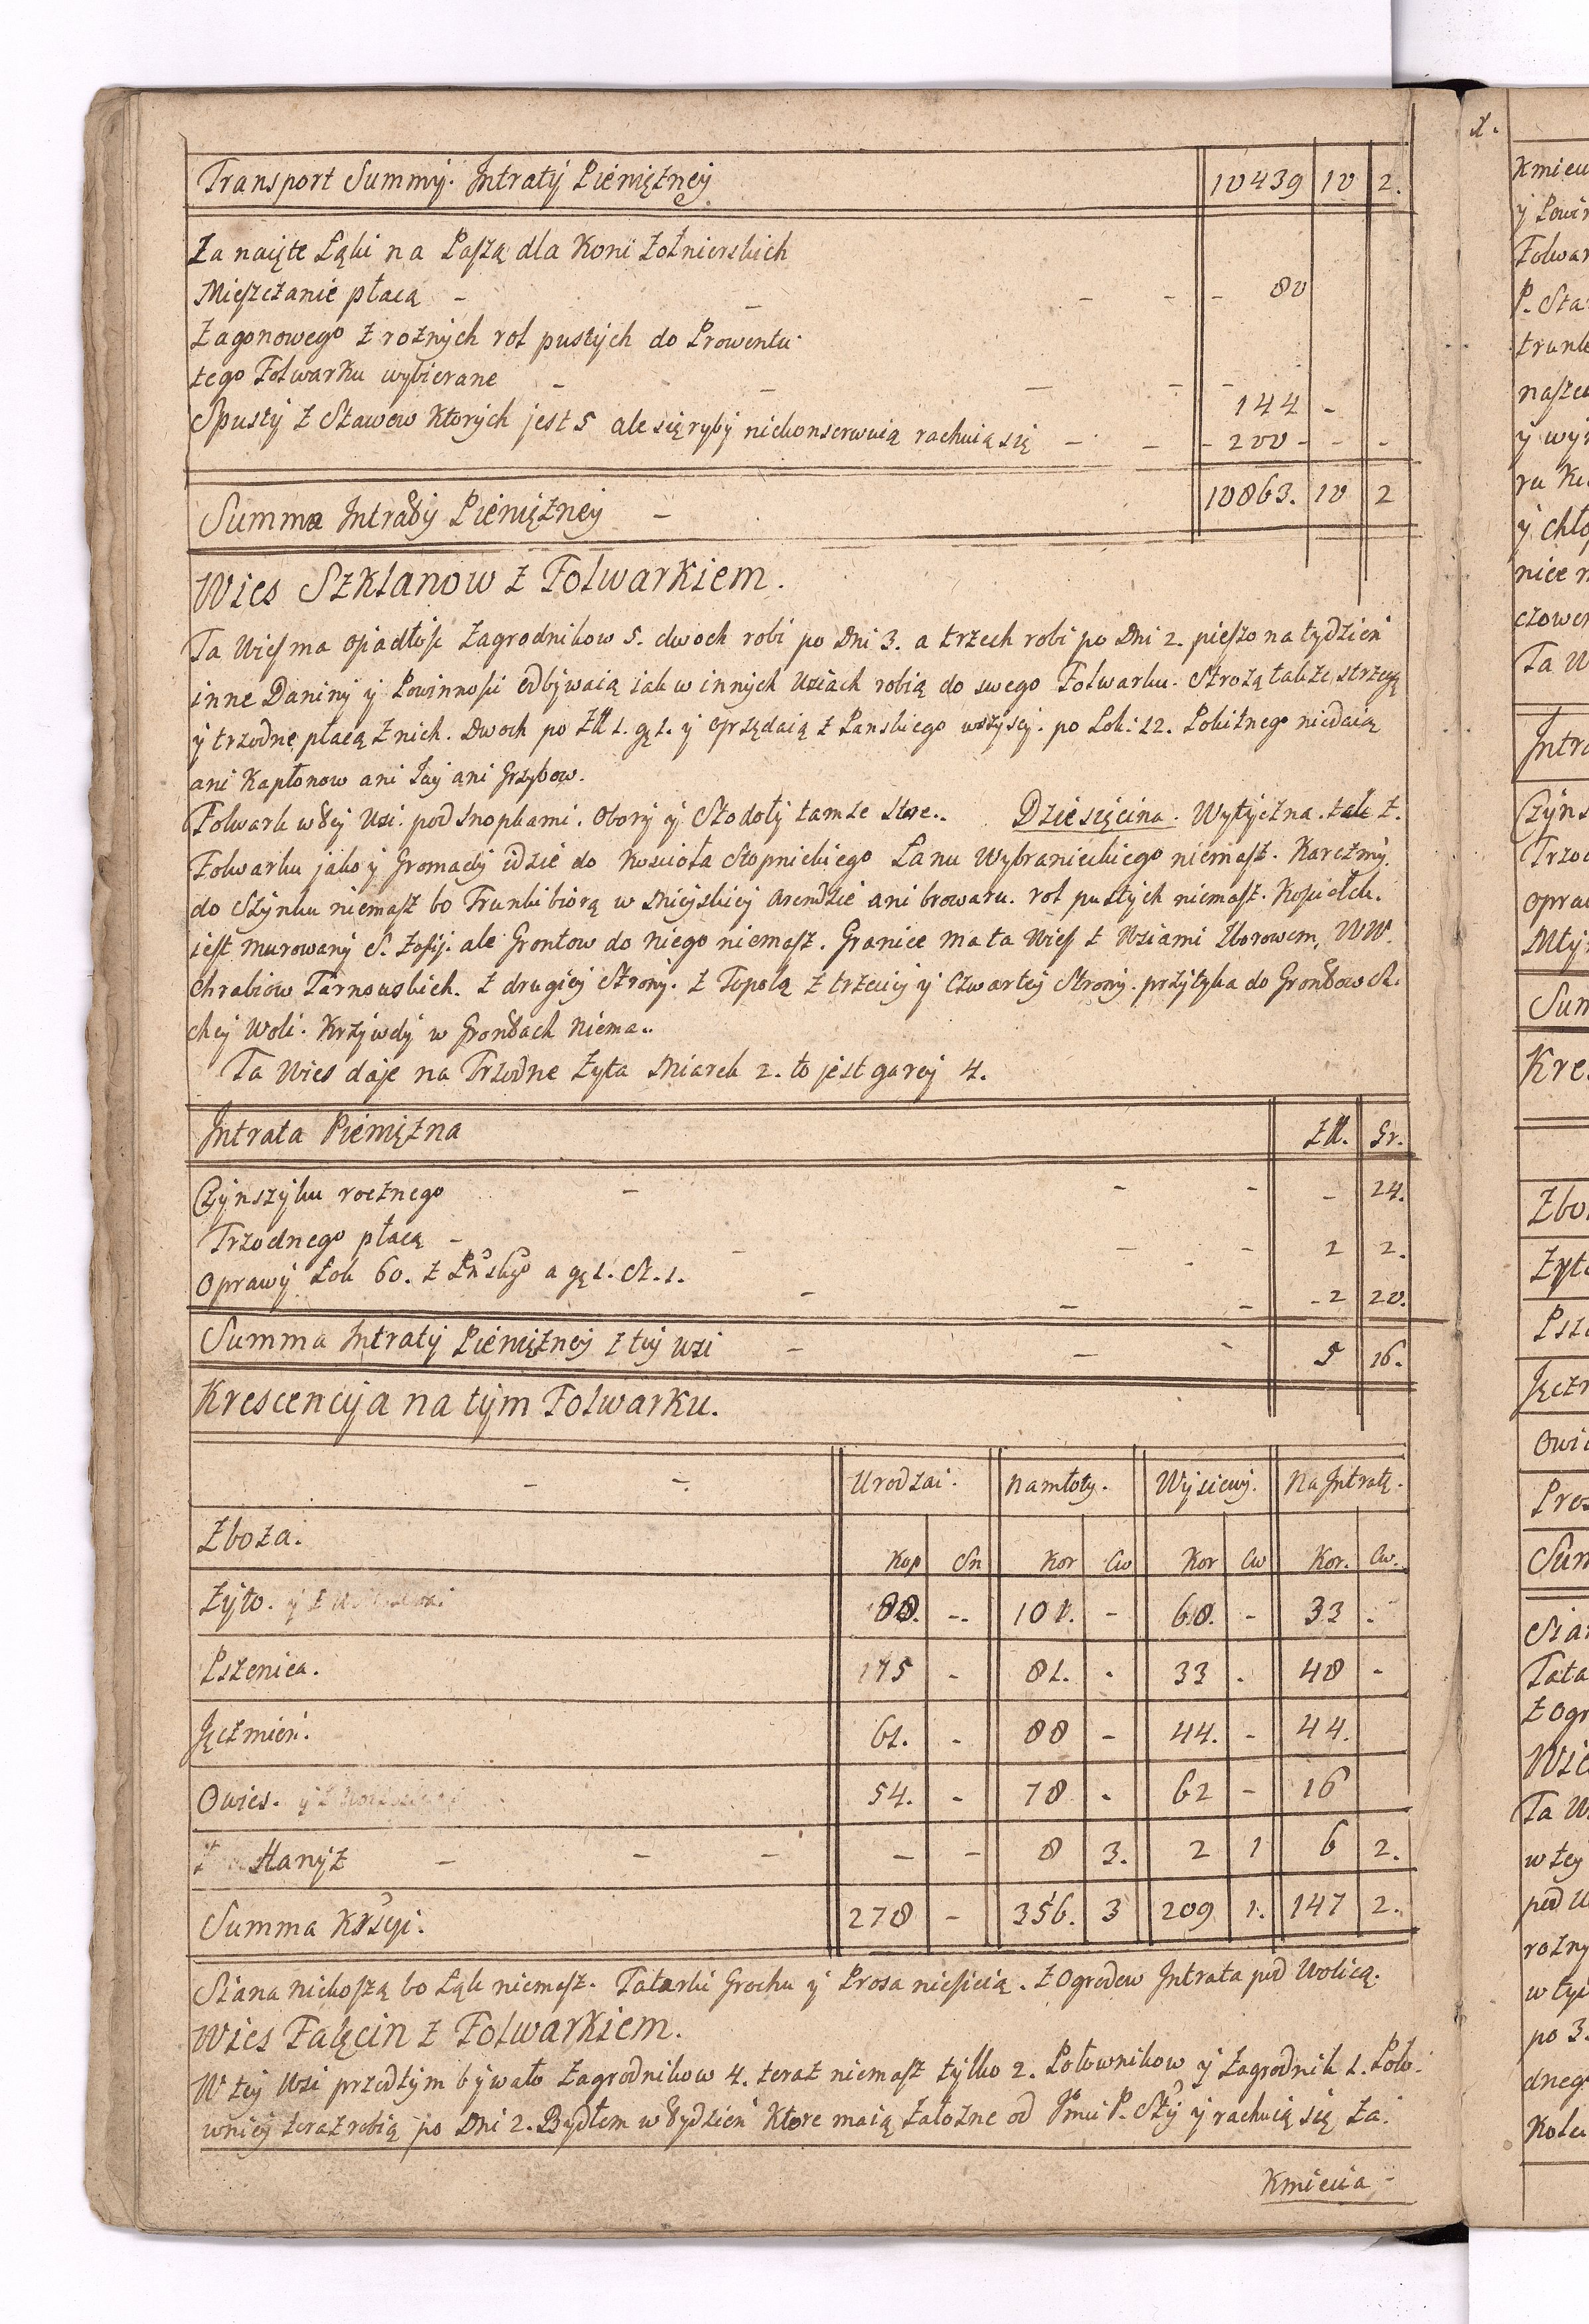 Transport Summy. Intraty Pieniężney 10439 10 2.
Za naięte Łąki na Paszą dla Koni Żołnierskich
Mieszczanie płacą - - - - - 80
Zagonowego z rożnych rol pustych do Prowentu
tego Folwarku wybierane - - - - - 144 -
Spusty z Stawow Ktorych jest 5 ale się ryby niekonserwuią rachuią się - - - 200 - - -
Summa Intraty Pieniężney - 10863. 10 2
Wies Szklanow z Folwarkiem.
Ta Wieś ma osiadłość Zagrodnikow 5. dwoch robi po Dni 3. a trzech robi po Dni 2. pieszo na tydzień
inne Daniny y Powinności odbywaią iak w innych Wsiach robią do swego Folwarku. Strożą także strzegą
y trzodne płacą z nich. Dwoch po Zł 1. gę 1. y oprzędaią z Pańskiego wszyscy. po Łok: 12. Łokiżnego niedaią
ani Kapłonow ani Jay ani Grzybow.
Folwark w tey Wsi. pod snopkami. Obory y Stodoły tamże stare.. Dziesięcina. Wytyczna. tak z.
Folwarku jako y Gromady idzie do Kościoła Stopnickiego Łanu Wybranieckiego niemasz. Karczmy.
do Szynku niemasz bo Trunki biorą w Mieyskiey Arendzie ani browaru. rol pustych niemasz. Kościołek.
iest murowany S. Zofij. ale Grontow do niego niemasz. Granice ma ta Wieś z Wsiami Zborowem, WW.
Chrabiow Tarnowskich. z drugiey Strony. z Topolą z trzeciey y Czwartey Strony. przytyka do Grontow Su.
chey Woli. Krzywdy w Grontach niema..
Ta Wies daje na Trzodne Żyta Miarek 2. to jest garcy 4.
Intrata Pieniężna Zł. Gr.
Czynszyku rocznego - - - - 24.
Trzodnego płacą - - - - 2 2.
Oprawy Łok 60. z Pńskgo a gę 1. Sz. 1. - - - - 2 20.
Summa Intraty Pieniężney z tey wsi - - - 5 16.
Krescencyja na tym Folwarku.
- - Urodzai. Namłoty. Wysiewy. Na Intratę.
Zboża. Kop Sn Kor Cw Kor Cw Kor. Cw.
Żyto. 88. -- 101. - 68. - 33 -
Pszenica. 175 - 81. - 33 - 48 -
Jęczmień. 61. - 88 - 44. - 44.
Owies. 54. - 78 - 62 - 16
Hanyż - - - - - 8 3. 2 1 6 2.
Summa Krscyi. 278 - 356. 3 209 1. 147 2.
Siana niekoszą bo Łąk niemasz. Tatarki Grochu y Prosa niesieią. z Ogrodow Intrata pod Wolicą.
Wies Falęcin z Folwarkiem.
W tey Wsi przedtym bywało Zagrodnikow 4. teraz niemasz tylko 2. Połownikow y Zagrodnik 1. Poło-
wnicy teraz robią po Dni 2. Bydłem w tydzień Ktore maią załozne od Jmci P. Sty y rachuią się za.
Kmiecia -